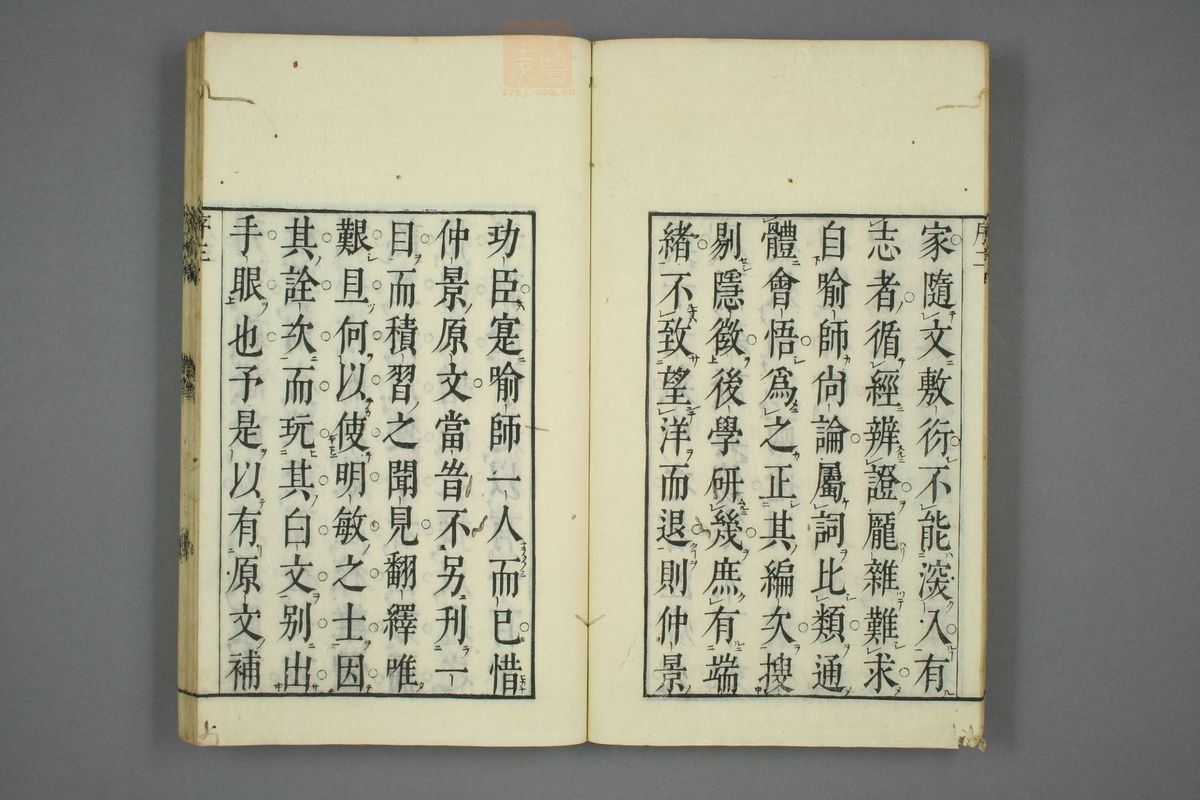 家隨文敷衍不能深入有
志者循經辨證厖雜難求
自喻師尚論屬詞比類通
體會悟爲之正其編次搜
剔隱徵後學研幾庶有端
緒不致望洋而退則仲景
功臣寔喻師一人而已惜
仲景原文當旹不另刊一
目而積習之聞見翻繹唯
艱且何以使明敏之士因
其詮次而玩其白文别出
手眼也予是以有原文補
序三
zysj.com.cn